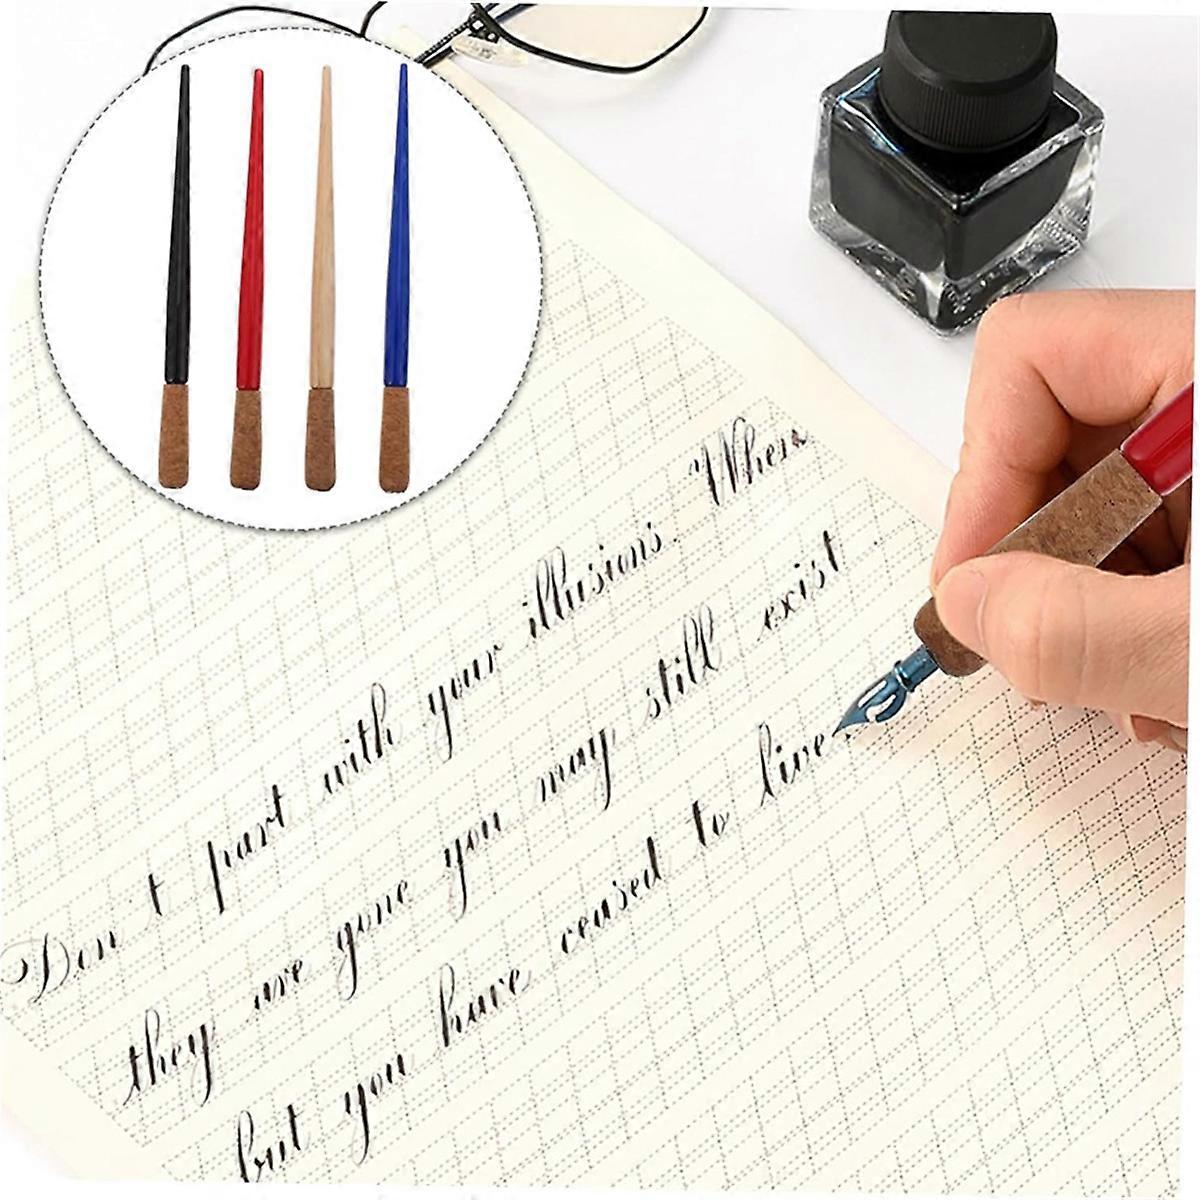 Don t part with your illusions. When
they are gone you may still exist.
but you have ceased to live.